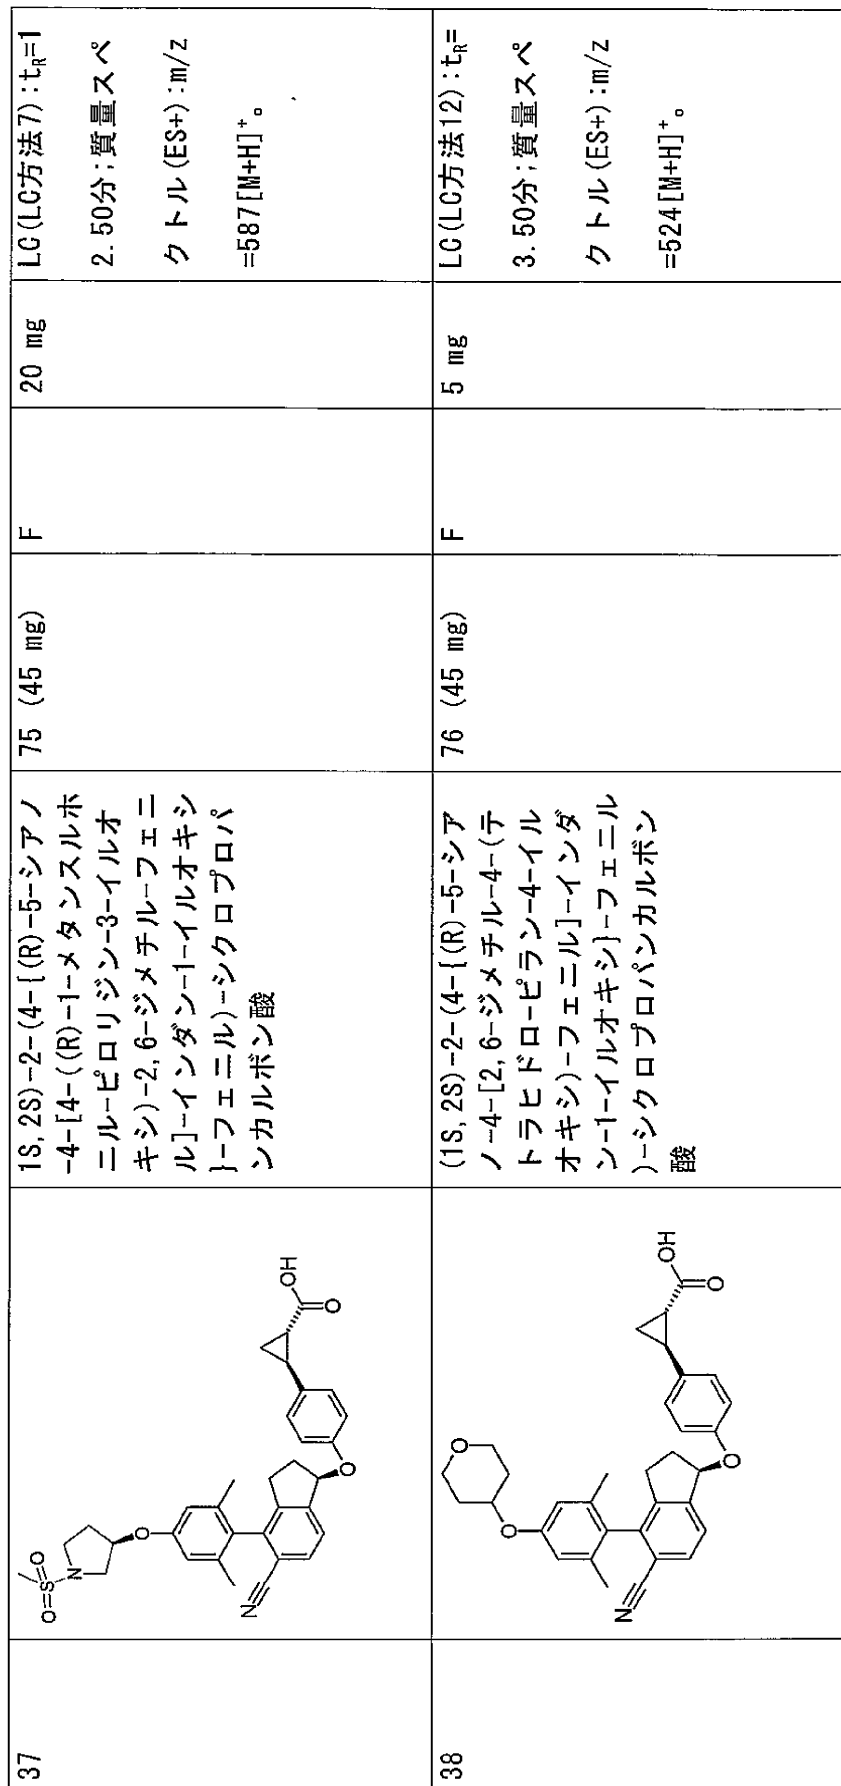 37
O=S=O
N
O
N
O
OH
O
1S,2S)-2-(4-{(R)-5-シアノ
-4-[4-((R)-1-メタンスルホ
ニル-ピロリジン-3-イルオ
キシ)-2,6-ジメチル-フェニ
ル]-インダン-1-イルオキシ
}-フェニル)-シクロプロパ
ンカルボン酸
75 (45 mg)
F
20 mg
LC(LC方法7):tR=1
2.50分;質量スペ
クトル(ES+):m/z
=587[M+H]+。
38
O
O
N
O
OH
O
(1S,2S)-2-(4-{(R)-5-シア
ノ-4-[2,6-ジメチル-4-(テ
トラヒドロ-ピラン-4-イル
オキシ)-フェニル]-インダ
ン-1-イルオキシ}-フェニル
)-シクロプロパンカルボン
酸
76 (45 mg)
F
5 mg
LC(LC方法12):tR=
3.50分;質量スペ
クトル(ES+):m/z
=524[M+H]+。